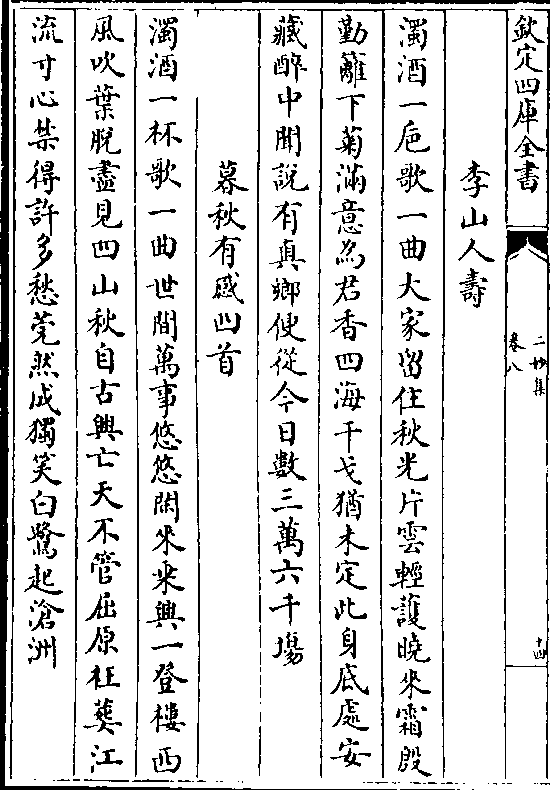 欽定四庫全書
二妙集
卷八
十四
李山人壽
濁酒一巵歌一曲大家留住秋光片雲輕護曉來霜殷
勤籬下菊滿意為君香四海干戈猶未定此身底處安
藏醉中聞說有真鄉便從今日數三萬六千塲
暮秋有感四首
濁酒一杯歌一曲世間萬事悠悠閑來乘興一登樓西
風吹葉脫盡見四山秋自古興亡天不管屈原枉葬江
流寸心禁得許多愁莞然成獨笑白鷺起滄洲